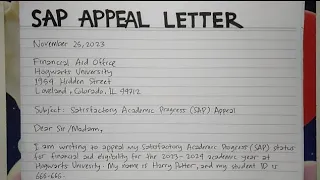 SAP APPEAL LETTER
November 25, 2023
Financial Aid Office
Hogwarts University
1954 Hidden Street
Loveland, Colorado, IL 49712
Subject: Satisfactory Academic Progress (SAP) Appeal
Dear Sir/Madam,
I am writing to appeal my Satisfactory Academic Progress (SAP) status
for financial aid eligibility for the 2023-2024 academic year at
Hogwarts University. My name is Harry Potter, and my student ID is